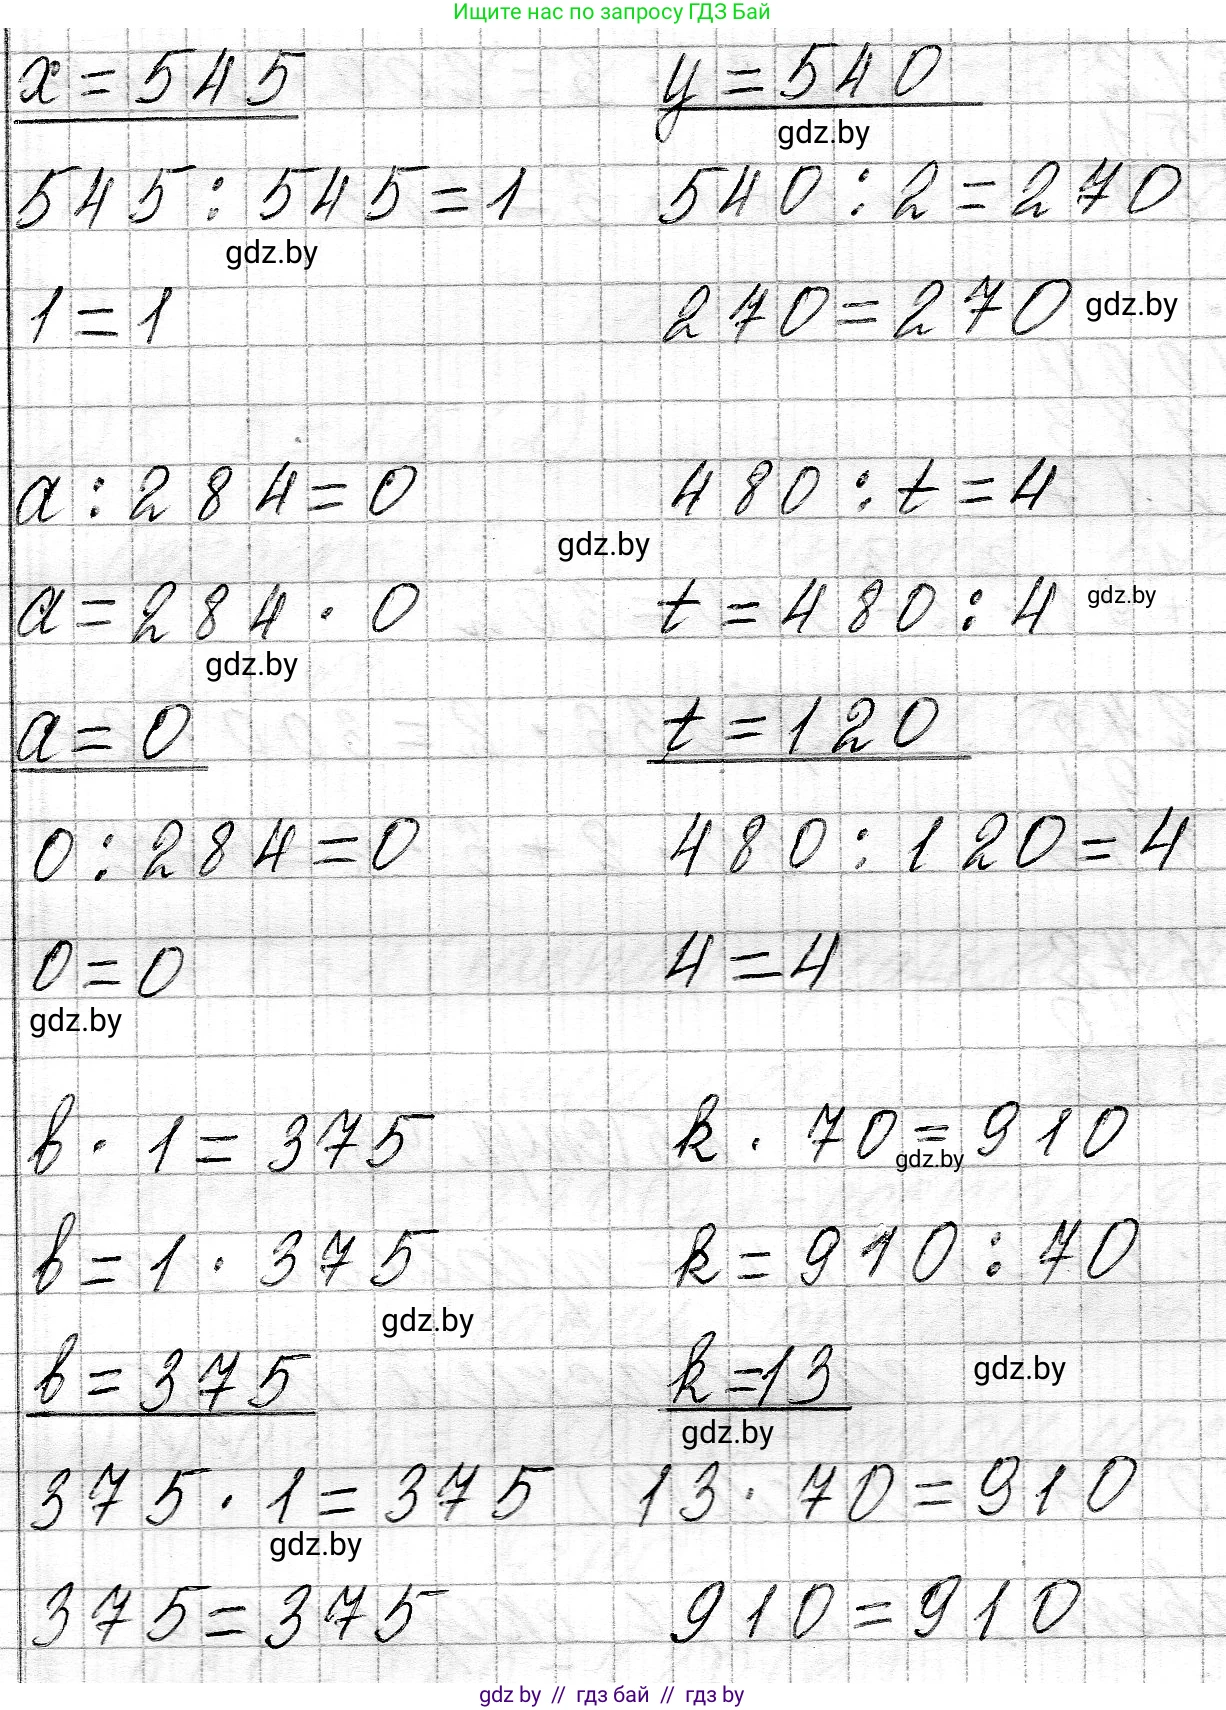 Ищите нас по запросу ГДЗ Бай
x = 545
y = 540
gdz.by
545 : 545 = 1
540 : 2 = 270
gdz.by
1 = 1
270 = 270
gdz.by
a : 284 = 0
480 : t = 4
gdz.by
a = 284 · 0
t = 480 : 4
gdz.by
gdz.by
a = 0
t = 120
0 : 284 = 0
480 : 120 = 4
0 = 0
4 = 4
gdz.by
b · 1 = 375
k · 70 = 910
gdz.by
b = 1 · 375
k = 910 : 70
gdz.by
b = 375
k = 13
gdz.by
gdz.by
375 · 1 = 375
13 · 70 = 910
gdz.by
375 = 375
910 = 910
gdz.by // гдз бай // гдз by